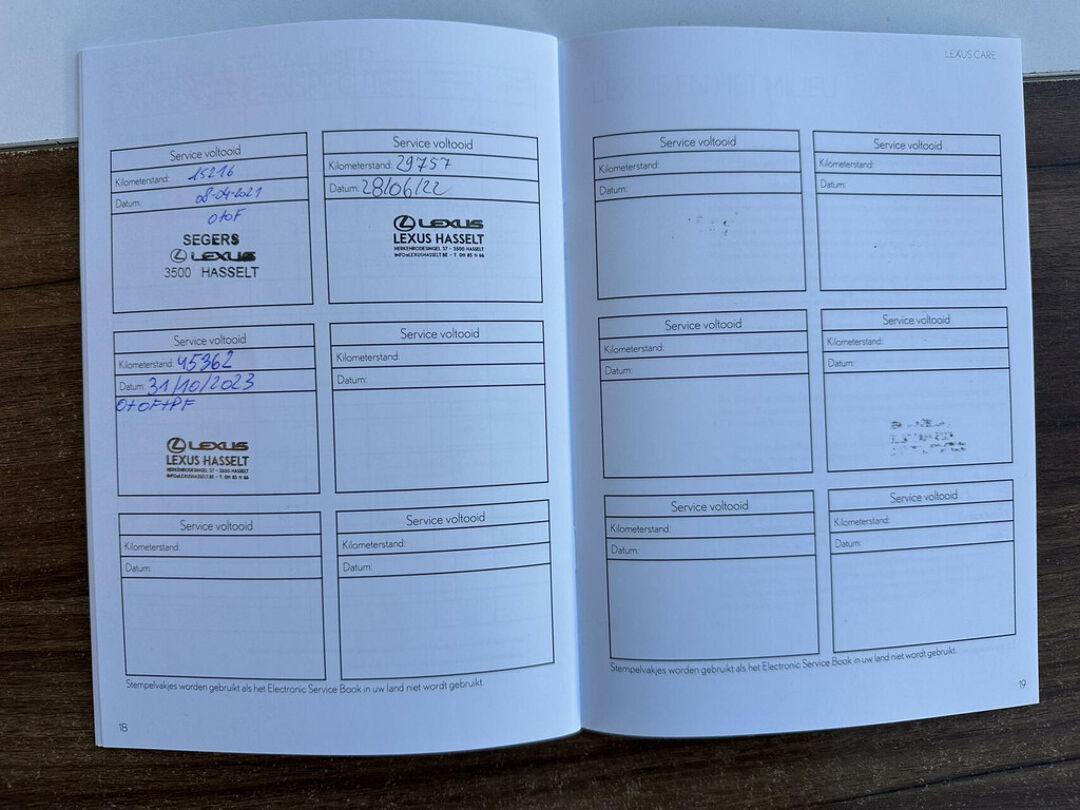 Service voltooid
Kilometerstand: 15216
Datum: 08-04-2021
O+oF
SEGERS
LEXUS
3500 HASSELT
Service voltooid
Kilometerstand: 29757
Datum: 28/06/22
LEXUS
LEXUS HASSELT
HERKENRODESINGEL 37 - 3500 HASSELT
INFO@LEXUSHASSELT.BE - T. 011 85 11 66
Service voltooid
Kilometerstand: 45362
Datum: 31/10/2023
O+OF+PF
LEXUS
LEXUS HASSELT
HERKENRODESINGEL 37 - 3500 HASSELT
INFO@LEXUSHASSELT.BE - T. 011 85 11 66
Service voltooid
Kilometerstand:
Datum:
Service voltooid
Kilometerstand:
Datum:
Service voltooid
Kilometerstand:
Datum:
Stempelvakjes worden gebruikt als het Electronic Service Book in uw land niet wordt gebruikt.
18
LEXUS CARE
Service voltooid
Kilometerstand:
Datum:
Service voltooid
Kilometerstand:
Datum:
Service voltooid
Kilometerstand:
Datum:
Service voltooid
Kilometerstand:
Datum:
Service voltooid
Kilometerstand:
Datum:
Service voltooid
Kilometerstand:
Datum:
Stempelvakjes worden gebruikt als het Electronic Service Book in uw land niet wordt gebruikt.
19